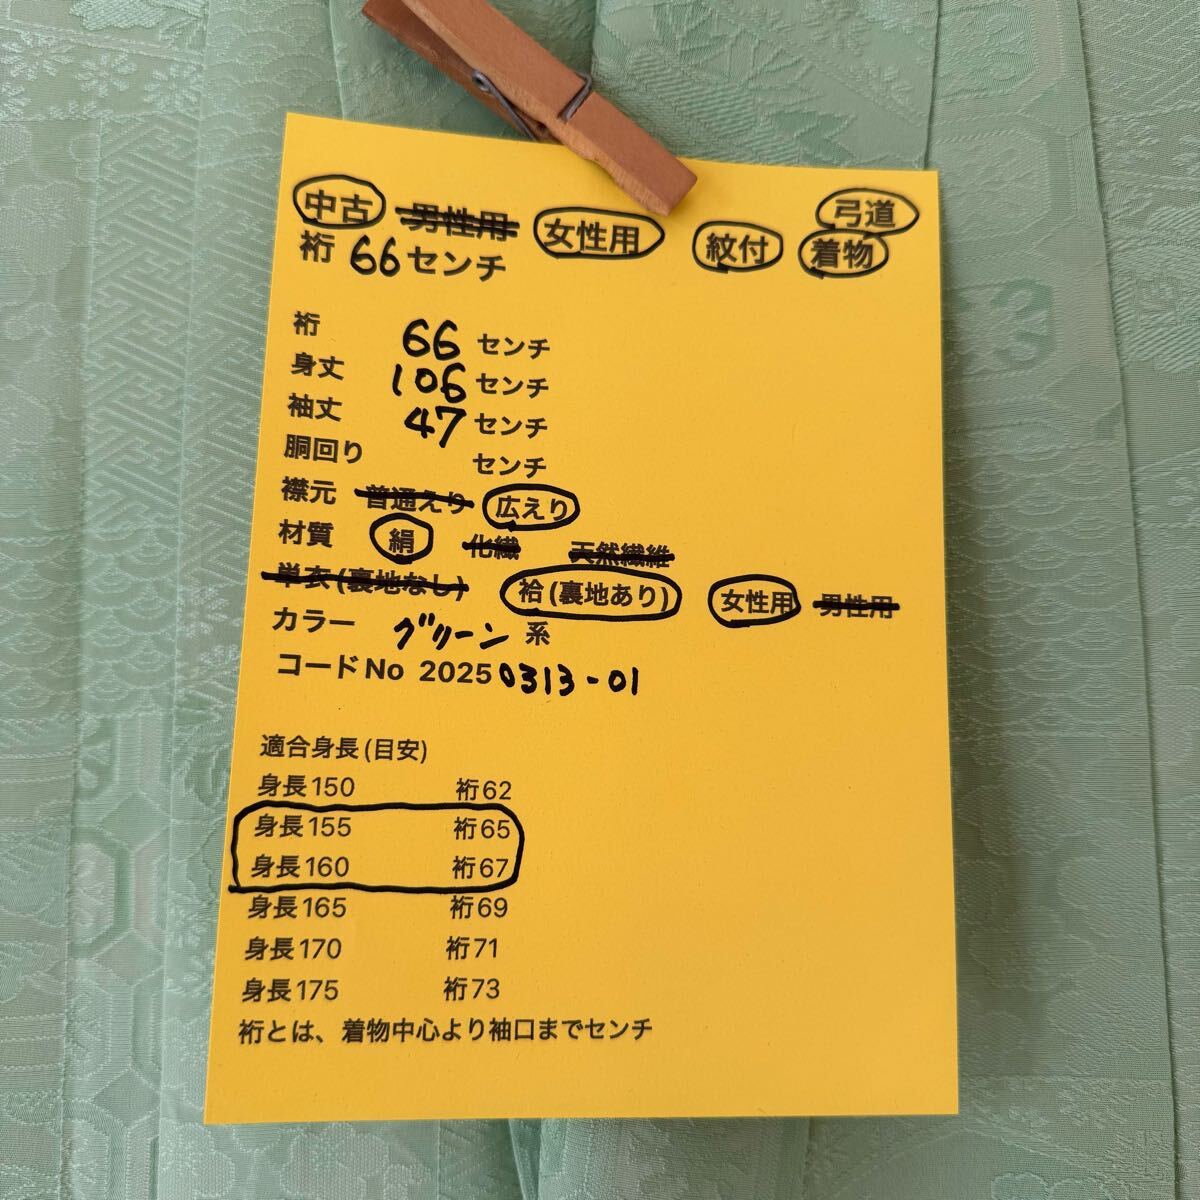 中古 男性用 女性用 紋付 弓道
裄 66 センチ 着物
裄 66 センチ
身丈 106 センチ
袖丈 47 センチ
胴回り センチ
襟元 普通えり 広えり
材質 絹 化繊 天然繊維
単衣(裏地なし) 袷(裏地あり) 女性用 男性用
カラー グリーン 系
コードNo 20250313-01
適合身長(目安)
身長150 裄62
身長155 裄65
身長160 裄67
身長165 裄69
身長170 裄71
身長175 裄73
裄とは、着物中心より袖口までセンチ